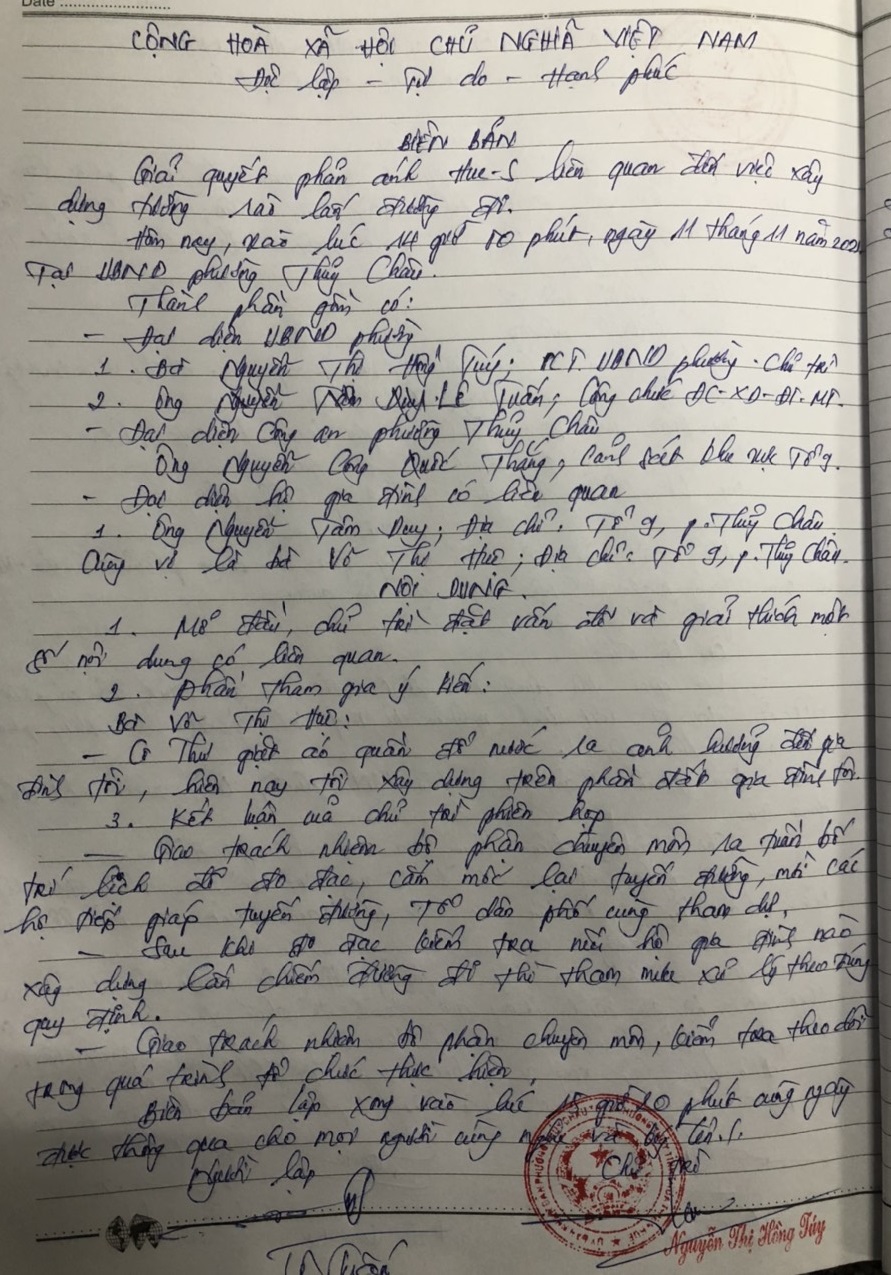 Date
CỘNG HOÀ XÃ HỘI CHỦ NGHĨA VIỆT NAM
Độc lập - Tự do - Hạnh phúc
BIÊN BẢN
Giải quyết phản ánh Hue-S liên quan đến việc xây
dựng tường rào lấn đường đi.
Hôm nay, vào lúc 14 giờ 10 phút, ngày 11 tháng 11 năm
Tại UBND phường Thủy Châu.
Thành phần gồm có:
- Đại diện UBND phường
1. Bà Nguyễn Thị Hồng Túy; PCT. UBND phường. Chủ trì
2. Ông Nguyễn Lê Tuấn; Công chức ĐC-XD-ĐT-MT.
- Đại diện Công an phường Thủy Châu
Ông Nguyễn Công Quốc Thắng, Cảnh sát khu vực Tổ 9.
- Đại diện hộ gia đình có liên quan
1. Ông Nguyễn Tâm Duy; Địa chỉ: Tổ 9, p. Thủy Châu
Cùng vợ là bà Võ Thị Huệ; Địa chỉ: Tổ 9, p. Thủy Châu.
NỘI DUNG.
1. Mở đầu, chủ trì đặt vấn đề và giải thích một
số nội dung có liên quan.
2. Phần tham gia ý kiến:
Bà Võ Thị Huệ:
- Cô Thu giặt áo quần đổ nước ra ảnh hưởng đến gia
đình tôi, hiện nay tôi xây dựng trên phần đất gia đình tôi.
3. Kết luận của chủ trì phiên họp
- Giao trách nhiệm bộ phận chuyên môn ra tuần bố
trí lịch để đo đạc, cắm mốc lại tuyến đường, mời các
hộ tiếp giáp tuyến đường, Tổ dân phố cùng tham dự.
- Sau khi đo đạc kiểm tra nếu hộ gia đình nào
xây dựng lấn chiếm đường đi thì tham mưu xử lý theo đúng
quy định.
- Giao trách nhiệm bộ phận chuyên môn, kiểm tra theo dõi
trong quá trình tổ chức thực hiện.
Biên bản lập xong vào lúc giờ phút cùng ngày
được thông qua cho mọi người cùng nghe và ký tên./.
Người lập
Chủ trì
Nguyễn Thị Hồng Túy